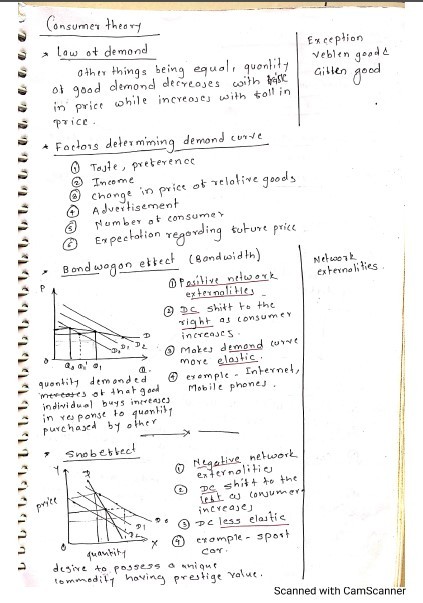 Consumer theory
* Law of demand
Other things being equal, quantity
of good demand decreases with rise
in price while increases with fall in
price.
Exception
Veblen good &
Giffen good
* Factors determining demand curve
① Taste, preference
② Income
③ change in price of relative goods
④ Advertisement
⑤ Number of consumer
⑥ Expectation regarding future price
* Bandwagon effect (Bandwidth)
Network
externalities.
① Positive network
externalities
② DC shift to the
right as consumer
increases.
③ Makes demand curve
more elastic.
④ example - Internet,
Mobile phones.
P
D
D₂
D₁
D₀
O
Q₀ Q₀' Q₁
Q.
quantity demanded
increases of that good
individual buys increases
in response to quantity
purchased by other
* Snob effect
① Negative network
externalities
② DC shift to the
left as consumer
increases
③ DC less elastic
④ example - sport
car.
Y
D
price
D₀
D₁
D₂
O
X
quantity
desire to possess a unique
commodity having prestige value.
Scanned with CamScanner